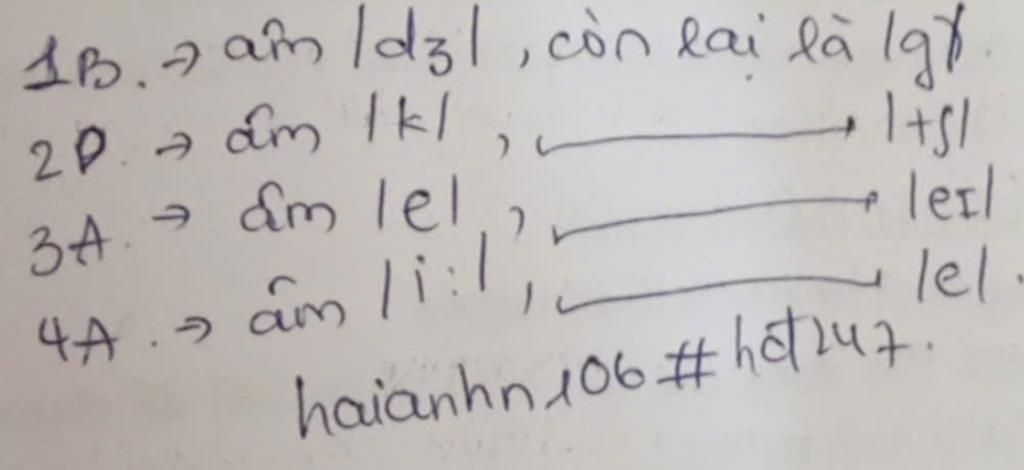 1B. → âm /dʒ/, còn lại là /g/.
2D. → âm /k/, → /tʃ/
3A. → âm /e/, → /eɪ/
4A. → âm /i:/, /e/.
haianhn106#hđt247.